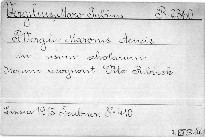 Vergilius Maro Publius
P. Vergili Maronis Aeneis
in usum scholarum
iterum recognovit Otto Ribbeck
Lipsiae 1913 Teubner. 8°